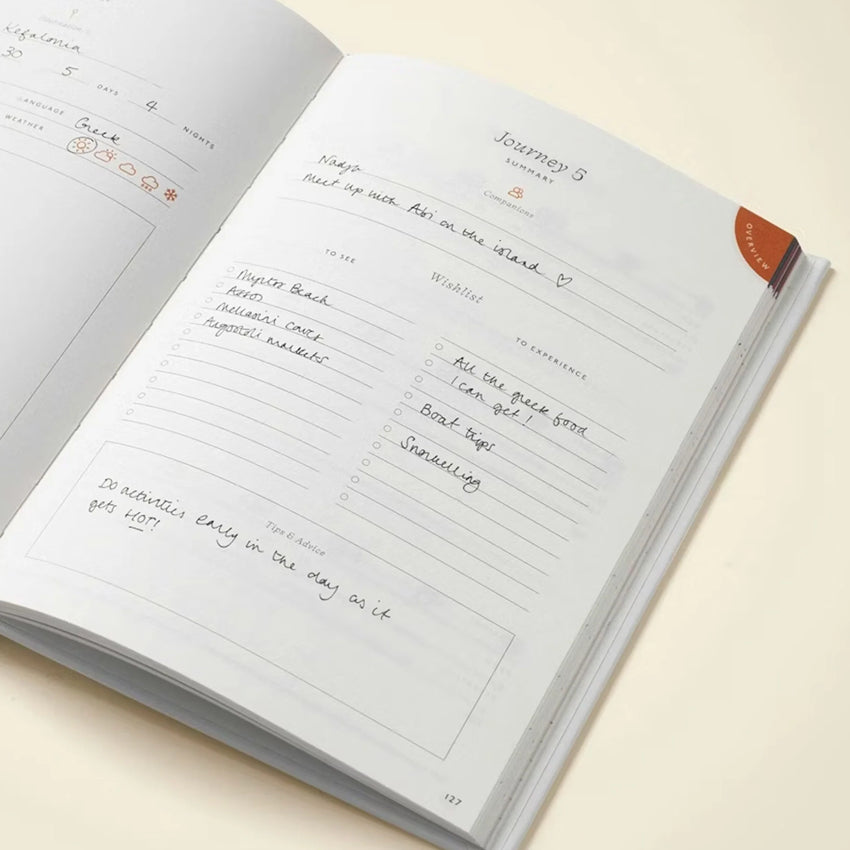 Destination
Kefalonia
30
5 DAYS 4 NIGHTS
LANGUAGE Greek
WEATHER
Journey 5
SUMMARY
Companions
Nadja
Meet up with Abi on the island ♡
Wishlist
TO SEE
Myrtos Beach
Assos
Mellisani caves
Argostoli markets
TO EXPERIENCE
All the greek food
I can get!
Boat trips
Snorkelling
Tips & Advice
Do activities early in the day as it
gets HOT!
OVERVIEW
127